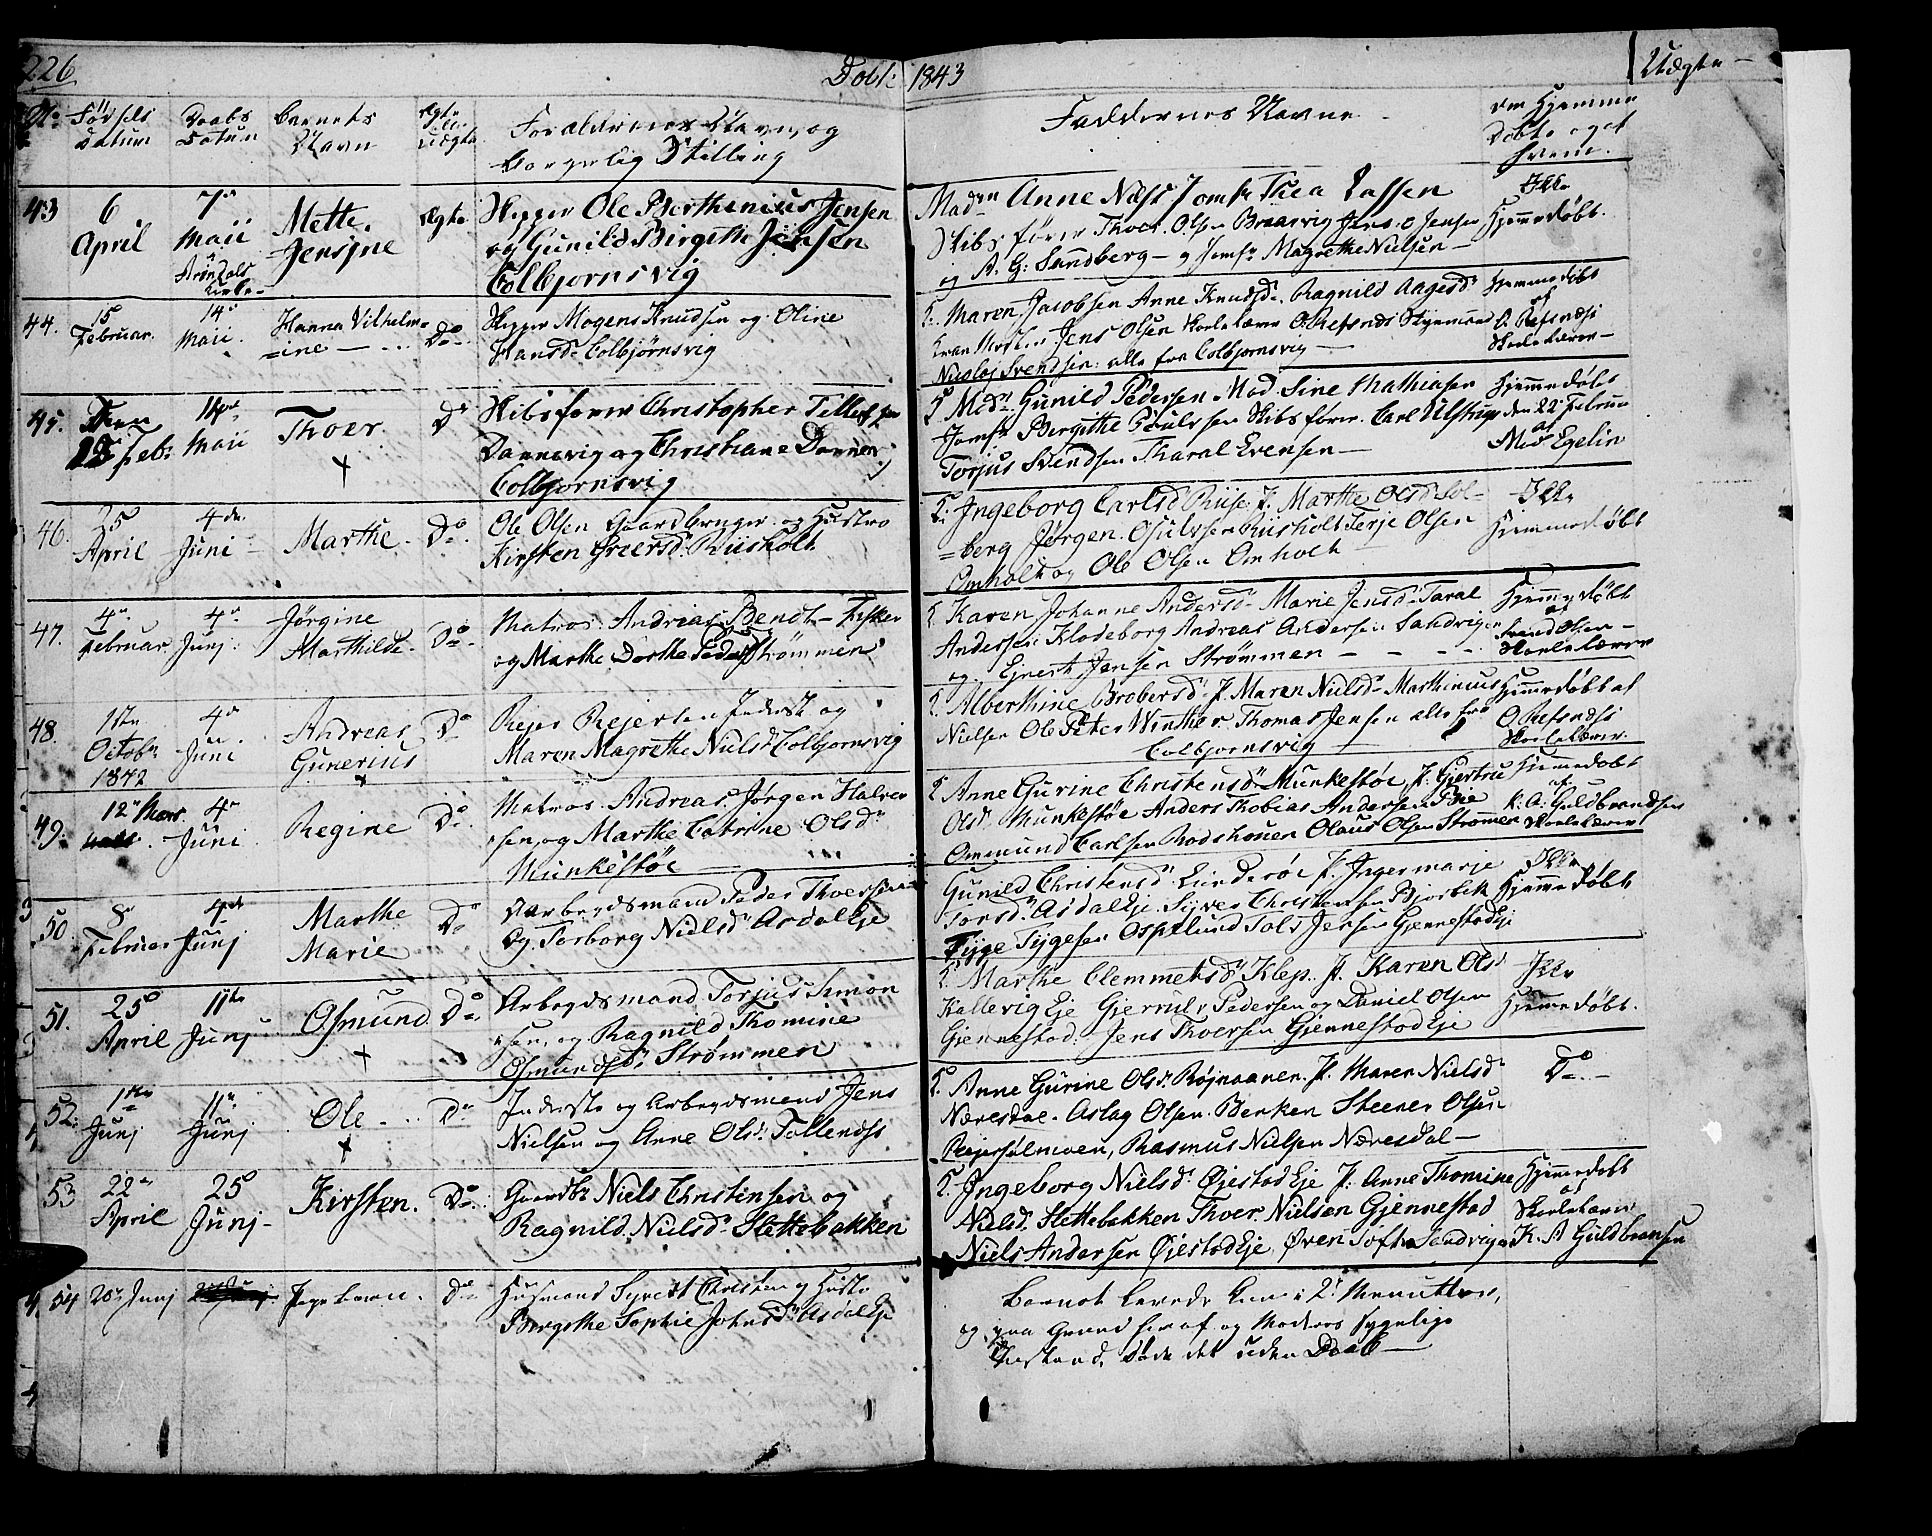 226
Døbte 1843
Uægte
No Fødsels Datum
Daabs Datum
Barnets Navn
Ægte eller Uægte
Forældrenes Navn og
borgerlig Stilling
Faddernes Navne
Om Hjemme
Døbt og af
hvem.
43
6 April
7de Maii Arendals Kirke
Mette Jensine
Ægte
Skipper Ole Berthenius Jensen
og Gunild Birgithe Jensen
Colbjørnsvig
Madm Anne Næss Jomfr Thea Lassen
Skibsfører Thoer Olsen Jens O Jensen
og A. G: Sandberg - og Jomfr Magrethe Nielsen
Ikke
Hjemmedøbt.
44.
15 Februar.
14de Maii.
Hanna Vilhelm=
=ine
Do
Skipper Mogens Knudsen og Oline
Hansd. Colbjørnsvig
Maren Jacobsen Anne Knudsd. Ragnild Aagesd
Jens Olsen Skolelærer O. Refsnæs
Svendsen: alle fra Colbjørnsvig
Hjemmedøbt
af
O. Refsnæs
Skolelærer
45.
Feb:
14de Maii
Thoer
Do
Skibsfører Christopher Tellefsen
Dannevig og Christiane Dannevig
Colbjørnsvig
Madm Gunild Pedersen Mad. Sine Mathiasen
Jomfr Bergithe Poulsen Skibsfører Carl Ulstrup
Torjus Svendsen Tharal Evensen
Hjemmedøbt
den 22 Februar
af
Mad Egelin
46.
25 April
4de Juni
Marthe
Do
Ole Olsen Gaardbruger og Hustro
Kirsten Greersd. Riisholt
Ingeborg Carlsd Riise P. Marthe Olsd Sol=
=berg Jørgen Osulvsen Riisholt Terje Olsen
Omholt og Ole Olsen Omholt
Ikke
Hjemmedøbt
47.
4de Februar
4de Junj
Jørgine
Marthilde
Do
Matros. Andreas Bendt Fisker
og Marthe Dorthe Pedersd Strømmen
Karen Johanne Andersd Marie Jensd Taral
Andersen Klodeborg Andreas Andersen Sandvigen
og Ejnert Jensen Strømmen
Hjemmedøbt
af
Svend Olsen
Skolelærer
48.
1ste Octobr 1842
4de Juni
Andreas
Gunerius
Do
Rejer Rejersen Inderste og
Maren Magrethe Nielsd Colbjørnsvig
Alberthine Brobersd P. Maren Nielsd Marthinius
Nielsen Ole Peter Winther Thomas Jensen alle fra
Colbjørnsvig
Hjemmedøbt af
O. Refsnæs
Skolelærer.
49.
12te Mars
4de Juni
Regine
Do
Matros. Andreas Jørgen Halvor
=sen og Marthe Catrine Olsdr
Munkestøe
Anne Gurine Christensd Munkestøe P. Gjertru
Olsd Munkestøe Anders Thobias Andersen Bie
Ommund Carlsen Rodshouen Olaus Olsen Strømmen
Hjemmedøbt
af
K. A. Guldbrandsen
Skolelærer
50.
8de Februar
4de Junj
Marthe
Marie
Do
Arbeydsmand Peder Thoersen
og Torborg Nielsd Asdal Eje
Gunild Christensd Lunderøe P. Ingermarje
Torsd. Asdal Eje. Syver Christensen Bjorbek
Tyge Tygesen Osplund Tols Jensen Gjennestad Eje
Ikke
Hjemmedøbt
51.
25 April
11te Junj
Osmund
Do
Arbeydsmand Torjus Simon
=sen, og Ragnild Thomine
Osmundsdr Strømmen
Marthe Clemmetsd Klep. P. Karen Olsd
Kallevig Eje Gjerrul Pedersen og Daniel Olsen
Gjennestad. Jens Thorsen Gjennestad Eje
Ikke
Hjemmedøbt.
52.
1ste Junj
11te Junj
Ole
Do
Inderste og Arbeydsmand Jens
Nielsen og Anne Olsd. Tollenæs
Anne Gurine Olsd. Røjnaanen. P. Maren Nielsd
Næresdal. Aslag Olsen Benken Steener Olsen
Rejersølmoen, Rasmus Nielsen Næresdal
Do
53
22de April
25 Junj
Kirsten.
Do
Gaardbr Niels Christensen og
Ragnild Nielsd Slettebakken
Ingeborg Nielsd. Øjestad Eje P. Anne Thomine
Nielsd. Slettebakken Thoer Nielsen Gjennestad
Niels Andersen Øjestad Eje Øven Sandvigen
Hjemmedøbt
af
Skolelærer
K. A Guldbransen
54
20de Junj
Pigebarn
Do
Husmand Syvert Christen og Hustr
Bergithe Sophie Johnsd Asdal Eje
Barnet levede kun i 2 Menutter,
og paa Grund heraf og Moderes sygelige
Tilstand, døde det uden Daab